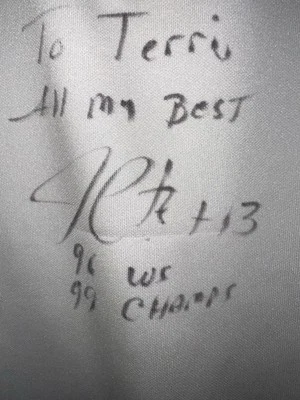 To Terri
All my Best
#13
96 WS
99 CHAMPS